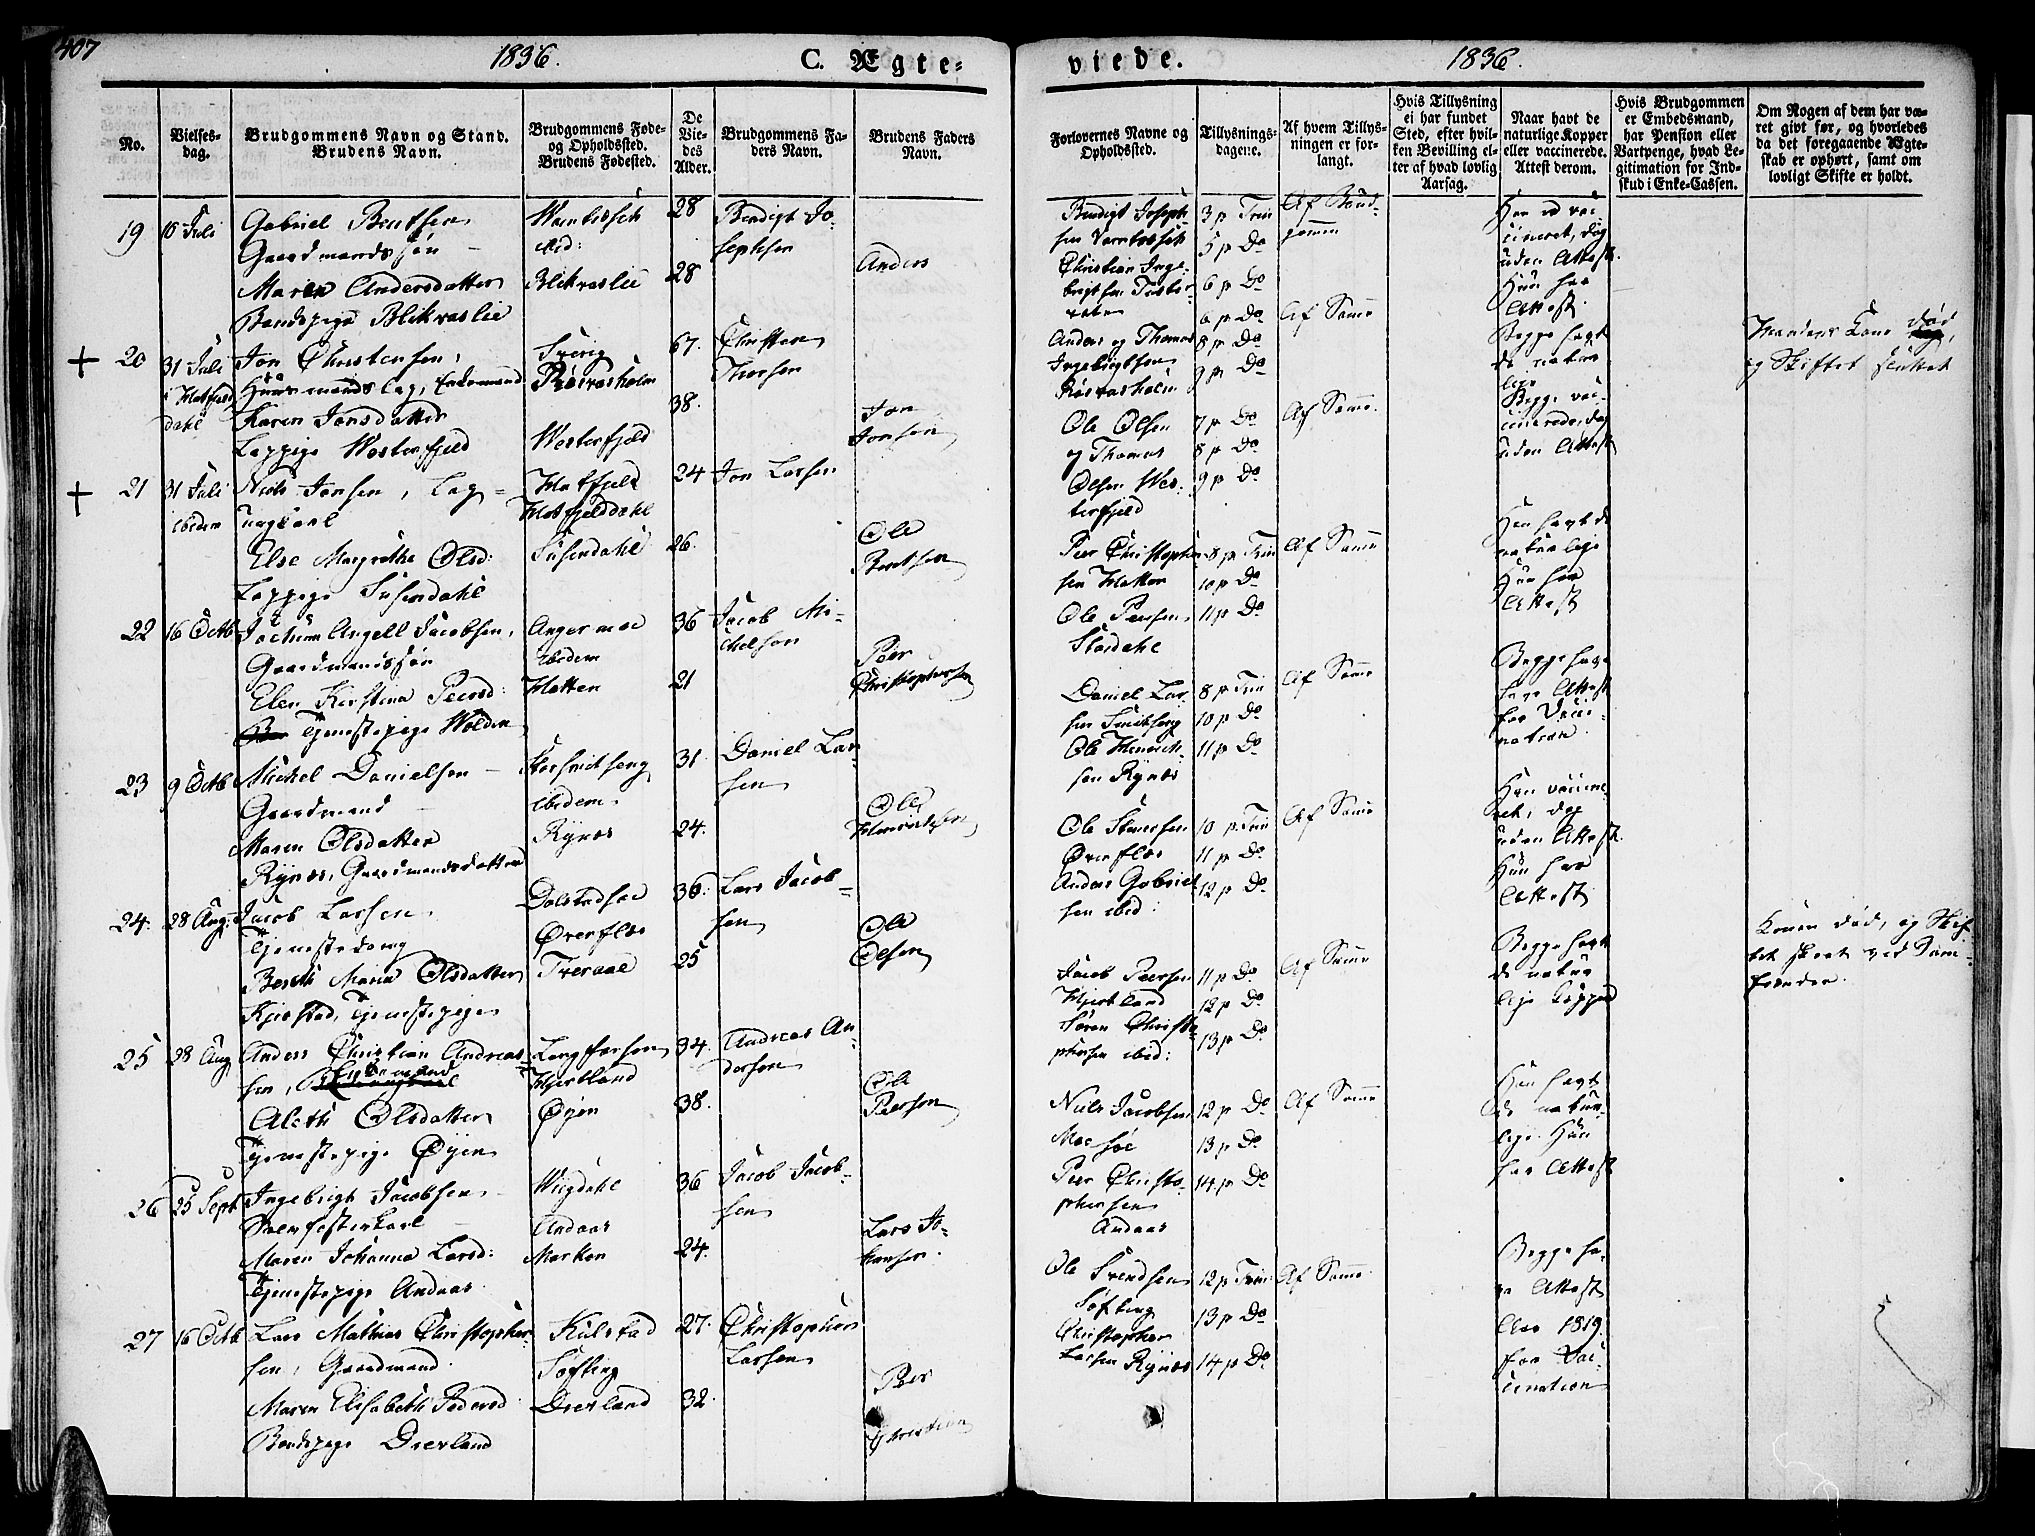 407
1836.
C. Ægte-
viede.
1836.
No.
Vielses-
dag.
Brudgommens Navn og Stand.
Brudens Navn.
Brudgommens Føde-
og Opholdssted.
Brudens Fødested.
De
Vie-
des
Alder.
Brudgommens Fa-
ders Navn.
Brudens Faders
Navn.
Forlovernes Navne og
Opholdssted.
Tillysnings-
dagene.
Af hvem Tillys-
ningen er for-
langt.
Hvis Tillysning
ei har fundet
Sted, efter hvil-
ken Bevilling el-
ter af hvad lovlig
Aarsag.
Naar havt de
naturlige Kopper
eller vaccinerede.
Attest derom.
Hvis Brudgommen
er Embedsmand,
har Pension eller
Vartpenge, hvad Le-
gitimation for Ind-
skud i Enke-Cassen.
Om Nogen af dem har væ-
ret givt før, og hvorledes
da det foregaaende Ægte-
skab er ophørt, samt om
lovligt Skifte er holdt.
19
10 Juli
Gabriel Bentsen
Gaardmandssøn
Maren Andersdatter
Bondepige Blikvaslie
Blikvaslie
28
28
Bendigt Jo-
sephsen
Anders
Bendigt Joseph
sen
Christian Inge-
brigtsen
3 p Trin
5 p Do
6 p Do
Af Brud-
gommen
Han vac-
cineret, dog
uden Attest.
Hun har
Attest
20
31 Juli
i Hatfjeld
dahl
Jon Christensen,
Huusmands Lap, Enkemand
Karen Jonsdatter
Lappige Westerfjeld
Røsvasholm
Westerfjeld
67.
38.
Christen
Thorsen
Jon
Jonsen
Anders og Thomas
Ingebrigtsen
Røsvasholm
6 p Do
8 p Do
9 p Do
Af Samme
Begge havt
de natur
lige
Mandens Kone død,
og Skiftet sluttet
21
31 Juli
ibidem
Niels Jonsen, Lap-
ungkarl
Else Margrethe Olsd:
Lappige Susendahl
Hatfjeld
Hatfjelddahl
Susendahl
24
26.
Jon Larsen
Ole
Bentsen
Ole Olsen
og Thomas
Olsen Wes-
terfjeld
7 p Do
8 p Do
9 p Do
Af Samme.
Begge vac-
cinerede, dog
uden Attest
22
16 Octb
Jochum Angell Jacobsen,
Gaardmandssøn
Elen Kirstina Peersd:
Tjenestepige Wolden
Angermoe
ibidem
Hatten
36
21
Jacob Mi-
chelsen
Peer
Christophersen
Peer Christopher
sen Hatten
Ole Peersen
Stordahl
8 p Trin
10 p Do
11 p Do
Af Samme
Han havt de
naturlige
Hun har
Attest
23
9 Octb
Michel Danielsen
Gaardmand
Maren Olsdatter
Rynes, Gaardmandsdatter
ibidem
Rynes
31.
24.
Daniel Lar-
sen
Ole
Henrichsen
Daniel Lar
sen
Ole Henrich-
sen Rynes
8 p Trin
10 p Do
11 p Do
Af Samme
Begge have
Attest
for Vacci-
nation
24.
28 Aug:
Jacob Larsen,
Tjenestedreng
Bereth Maria Olsdatter
Kjerstad, Tjenestepige
Dolstadhoe
Øverflæ
Tveraae
36.
25
Lars Jacob-
sen
Ole
Olsen
Ole
Øverflæ
Anders Gabriel
sen ibid:
10 p. Trin
11 p Do
12 p Do
Af Samme
Han vaccine-
ret, dog
uden Attest.
Hun har
Attest
25
28 Aug
Anders Christian Andreas-
sen, Enkemand
Aleth Olsdatter
Tjenestepige Øyen
Hjertland
Øyen
34.
38.
Andreas An
dersen
Ole
Peersen
Jacob Peersen
Hjertland
Søren Christo-
phersen ibid:
11 p Do
12 p Do
13 p Do
Af Samme
Begge havt
de natur
lige Kopper
Konen død, og Skif
tet skeet ved Sam-
frænder.
26
25 Sept
Ingebrigt Jacobsen
Maren Johanna Larsd:
Tjenestepige Andaas
Wiigdahl
Andaas
Marken
36
24.
Jacob Jacob-
sen
Lars Jo-
hansen.
Niels Jacobsen
Moe
Peer Christo-
phersen
Andaas
12 p Do
13 p Do
14 p Do
Af Samme
Han havt
de natur-
lige. Hun
har Attest
27
16 Octb
Lars Mathias Christopher-
sen, Gaardmand
Maren Elisabeth Pedersd
Bondepige Dreviand
Kulstad
Søfting
27.
32.
Christopher
Larsen
Peer
Christian
Ole Svendsen
Søfting
Christopher
Larsen Rynes
12 p Trin
13 p Do
14 p Do
Af Samme.
Begge ha-
ve Attest
Aar 1819.
for Vac-
cination